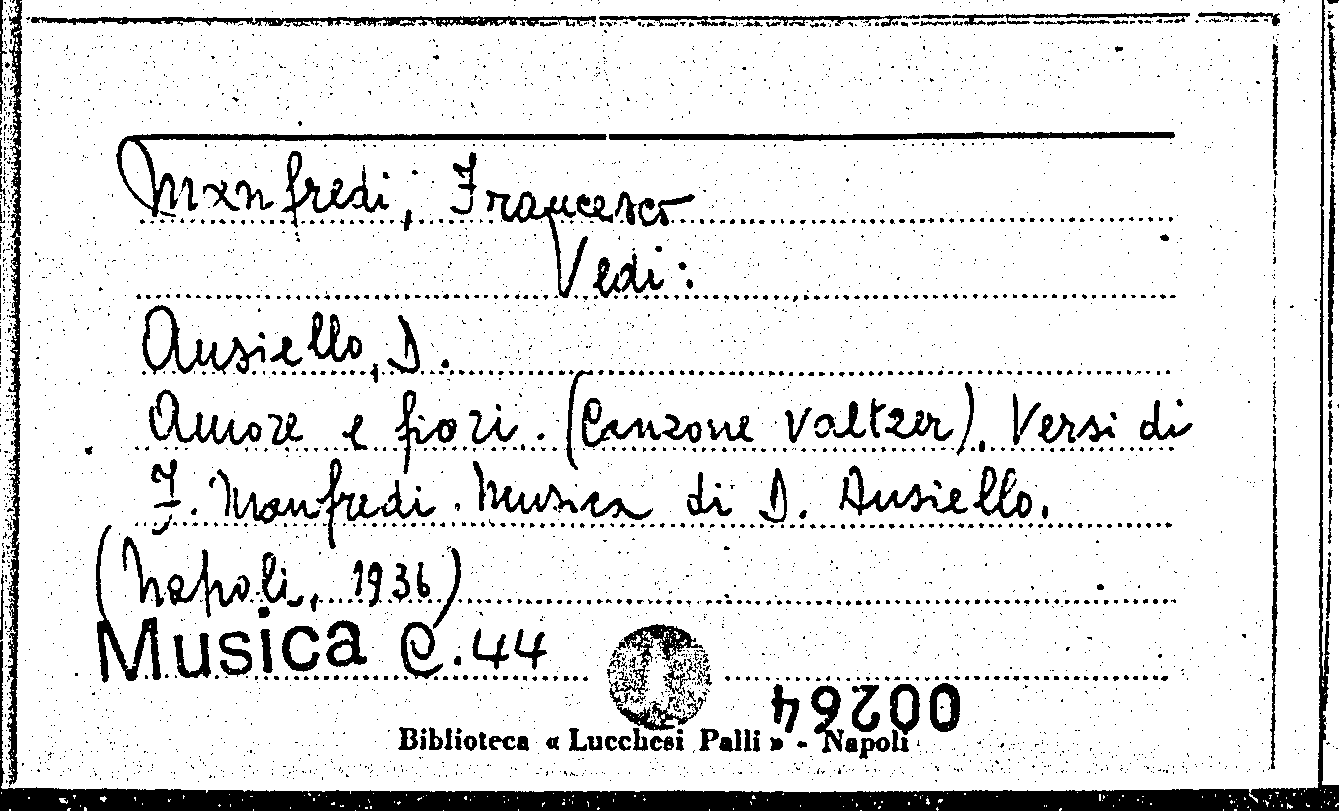 Manfredi, Francesco
Vedi:
Ausiello, D.
Amore e fiori. (Canzone valtzer). Versi di
F. Manfredi. Musica di D. Ausiello.
(Napoli, 1936)
Musica C.44
00264
Biblioteca « Lucchesi Palli » - Napoli